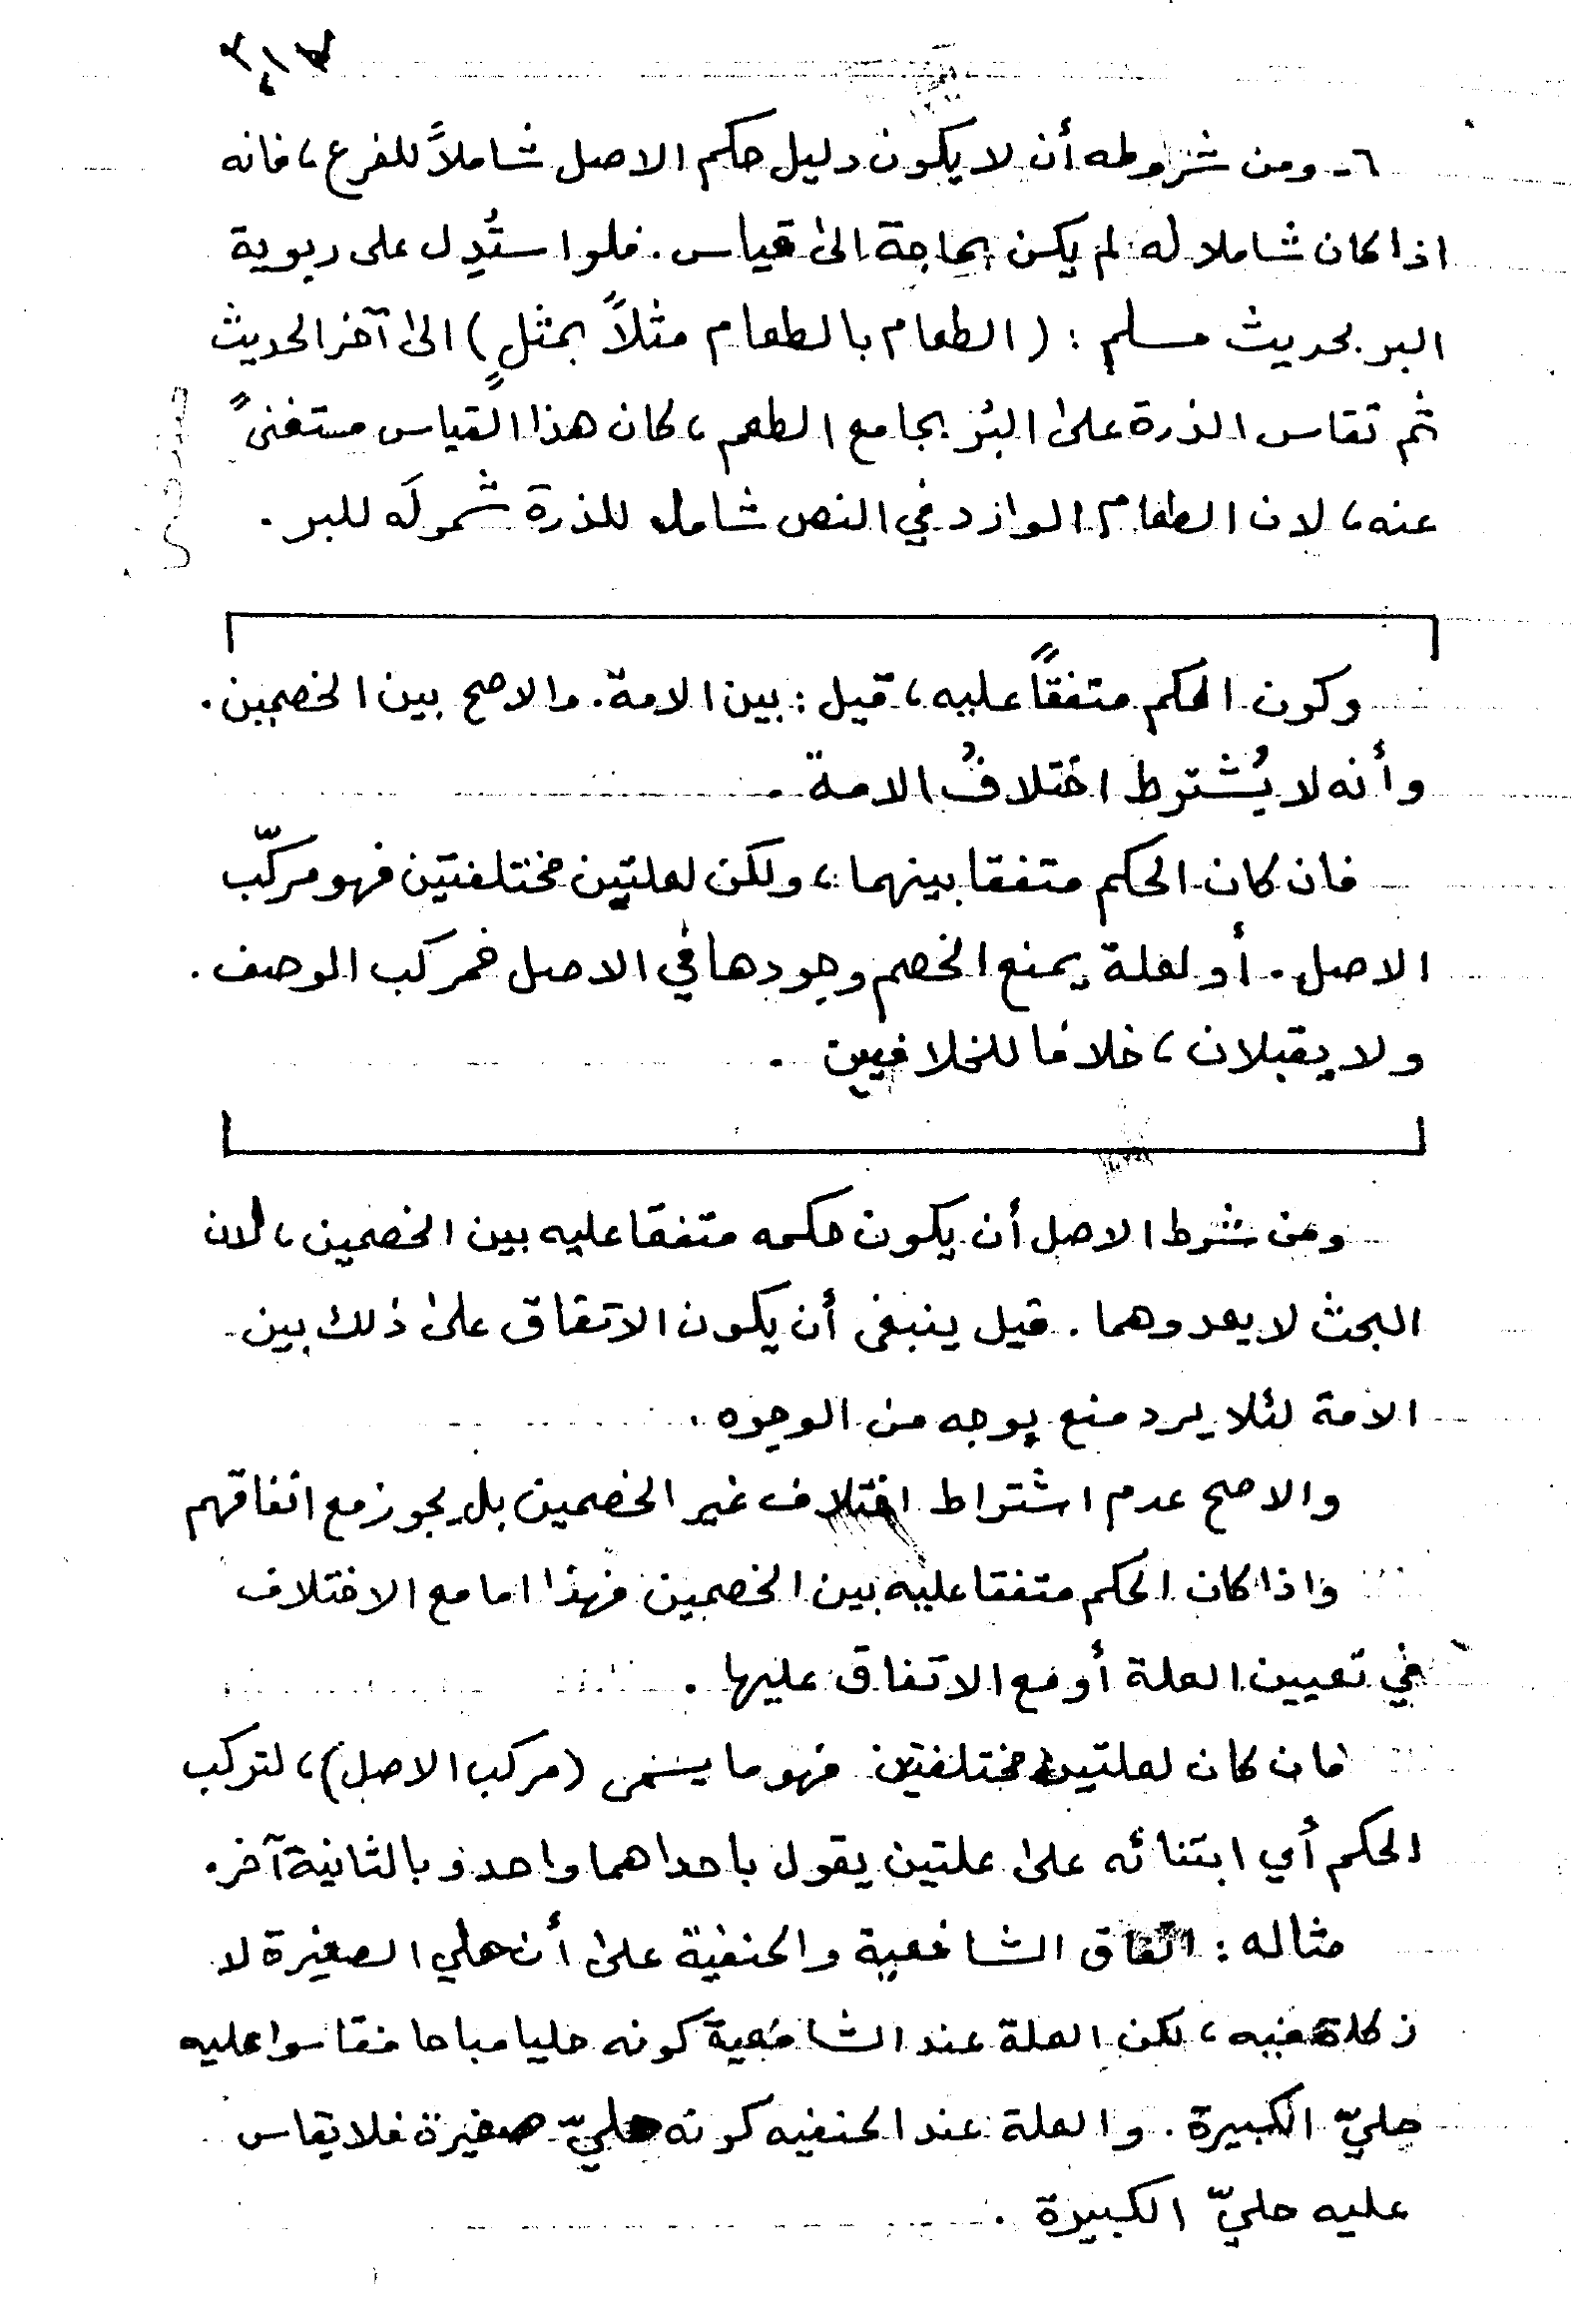 ٦ـ ومن شروطه أن لا يكون دليل حكم الاصل شاملاً للفرع، فانه
اذا كان شاملا له لم يكن بحاجة الى قياس. فلو استُدِل على ربوية
البر بحديث مسلم : (الطعام بالطعام مثلاً بمثلٍ) الى آخر الحديث
ثم تقاس الذرة على البُر بجامع الطعم، كان هذا القياس مستغنىً
عنه، لان الطعام الوارد في النص شامل للذرة شمولَه للبر .
وكون الحكم متفقاً عليه، قيل : بين الامة. والاصح بين الخصمين .
وأنه لا يُشترط اختلافُ الامة .
فان كان الحكم متفقا بينهما، ولكن لعلتين مختلفتين فهو مركّب
الاصل . أو لعلة يمنع الخصم وجودها في الاصل فمركب الوصف .
ولا يقبلان، خلافا للخلافيين .
ومن شرط الاصل أن يكون حكمه متفقا عليه بين الخصمين، لان
البحث لا يعدوهما . قيل ينبغي أن يكون الاتفاق على ذلك بين
الامة لئلا يرد منع بوجه من الوجوه .
والاصح عدم اشتراط اختلاف غير الخصمين بل يجوز مع اتفاقهم
واذا كان الحكم متفقا عليه بين الخصمين فهذا اما مع الاختلاف
في تعيين العلة أو مع الاتفاق عليها .
فان كان لعلتين مختلفتين فهو ما يسمى (مركب الاصل)، لتركب
الحكم أي ابتنائه على علتين يقول باحداهما واحد وبالثانية آخر .
مثاله : اتفاق الشافعية والحنفية على أن حلي الصغيرة لا
زكاة فيه، لكن العلة عند الشافعية كونه حليا مباحا فقاسوا عليه
حليّ الكبيرة . والعلة عند الحنفيه كونه حليّ صغيرة فلا يقاس
عليه حليّ الكبيرة .